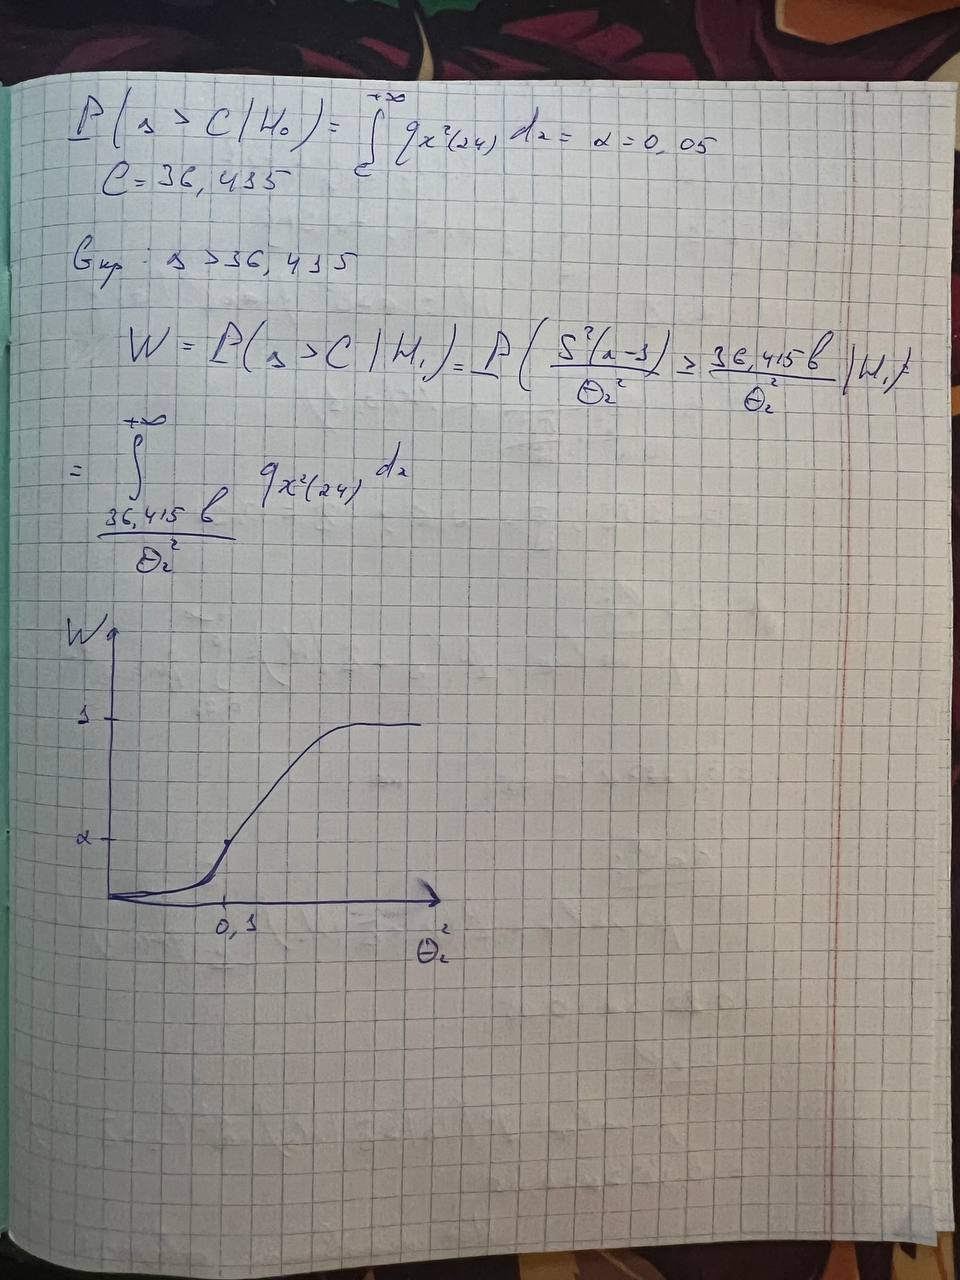 P(з > C | H₀) = ∫_C^{+∞} q_{χ²(24)} dz = α = 0,05
C = 36,415
Gкр : з > 36,415
W = P(з > C | H₁) = P( S²(n-1) / θ₂² > 36,415 b / θ₂² | H₁) =
= ∫_{36,415 b / θ₂²}^{+∞} q_{χ²(24)} dz
W
1
α
0,1
θ₂²